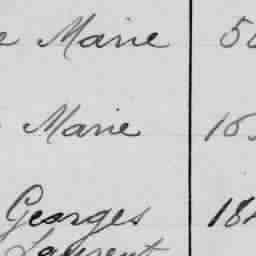 e Marie 50
Marie 16
Georges 18
Laurent